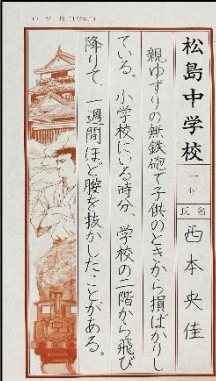 松島中学校
一年
氏名
西本央佳
親ゆずりの無鉄砲で子供のときから損ばかりし
ている。小学校にいる時分、学校の二階から飛び
降りて、一週間ほど腰を抜かしたことがある。